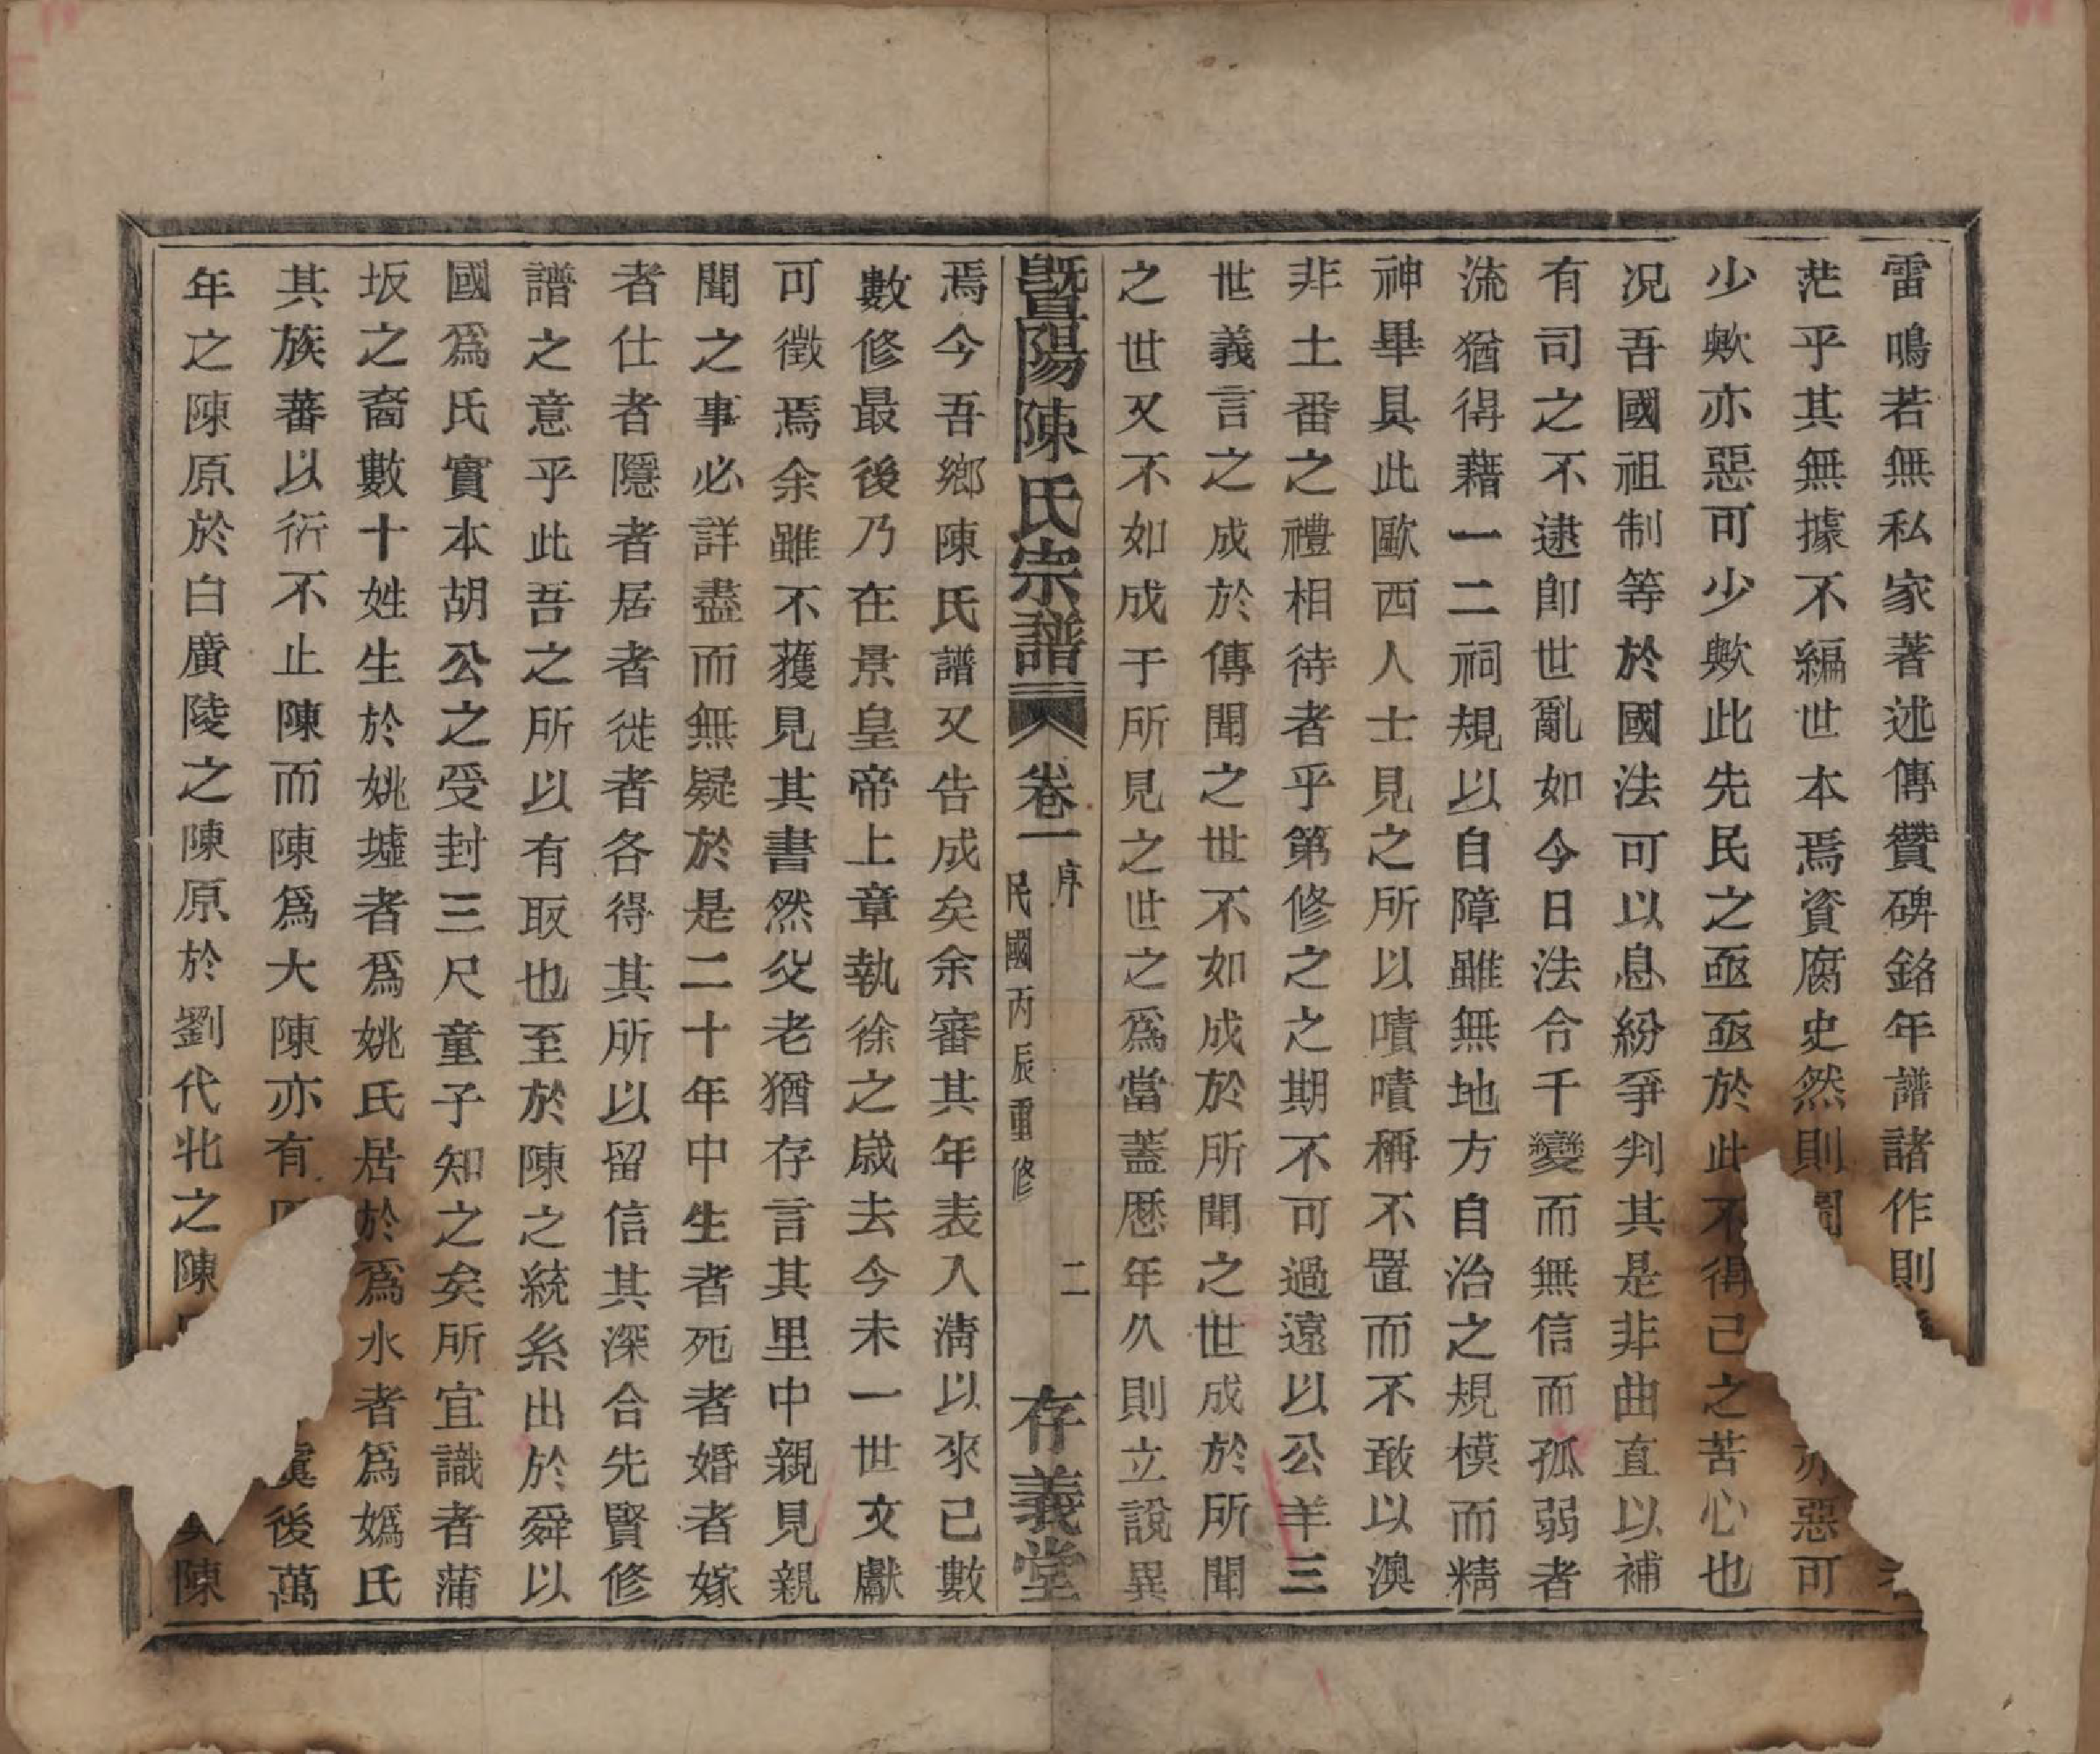 雷鳴若無私家著述傳贊碑銘年譜諸作則
茫乎其無據不編世本焉資腐史然則亦惡可
少歟亦惡可少歟此先民之亟亟於此不得已之苦心也
况吾國祖制等於國法可以息紛爭判其是非曲直以補
有司之不逮卽世亂如今日法令千變而無信而孤弱者
流猶得藉一二祠規以自障雖無地方自治之規模而精
神畢具此歐西人士見之所以嘖嘖稱不置而不敢以澳
非土番之禮相待者乎第修之之期不可過遠以公羊三
世義言之成於傳聞之世不如成於所聞之世成於所聞
之世又不如成于所見之世之爲當蓋歷年久則立說異
暨陽陳氏宗譜 卷一 序 民國丙辰重修 二 存義堂
焉今吾鄉陳氏譜又告成矣余審其年表入淸以來已數
數修最後乃在景皇帝上章執徐之歲去今未一世文獻
可徵焉余雖不獲見其書然父老猶存言其里中親見親
聞之事必詳盡而無疑於是二十年中生者死者婚者嫁
者仕者隱者居者徙者各得其所以留信其深合先賢修
譜之意乎此吾之所以有取也至於陳之統系出於舜以
國爲氏實本胡公之受封三尺童子知之矣所宜識者蒲
坂之裔數十姓生於姚墟者爲姚氏居於爲水者爲嬀氏
其族蕃以衍不止陳而陳爲大陳亦有虞後萬
年之陳原於白廣陵之陳原於劉代北之陳陳